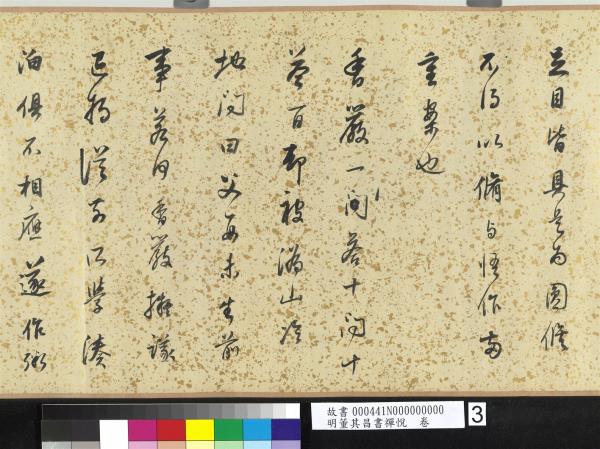 足目皆具是為圓修
不得以脩與悟作兩
重案也
香嚴一問答十問十
答百却被溈山冷
地問曰父母未生前
事若何香嚴擬議
將從前所學湊
泊俱不相應遂作粥
故書 000441N000000000
明董其昌書禪悅 卷
3